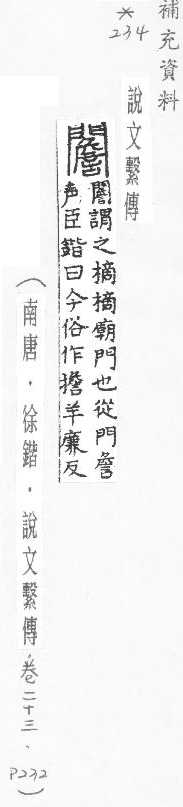 補充資料
*
234
說文繫傳
閻謂之摘摘廟門也從門詹
声臣鍇曰今俗作擔羊廉反
(南唐·徐鍇·說文繫傳·卷二十三、P232)